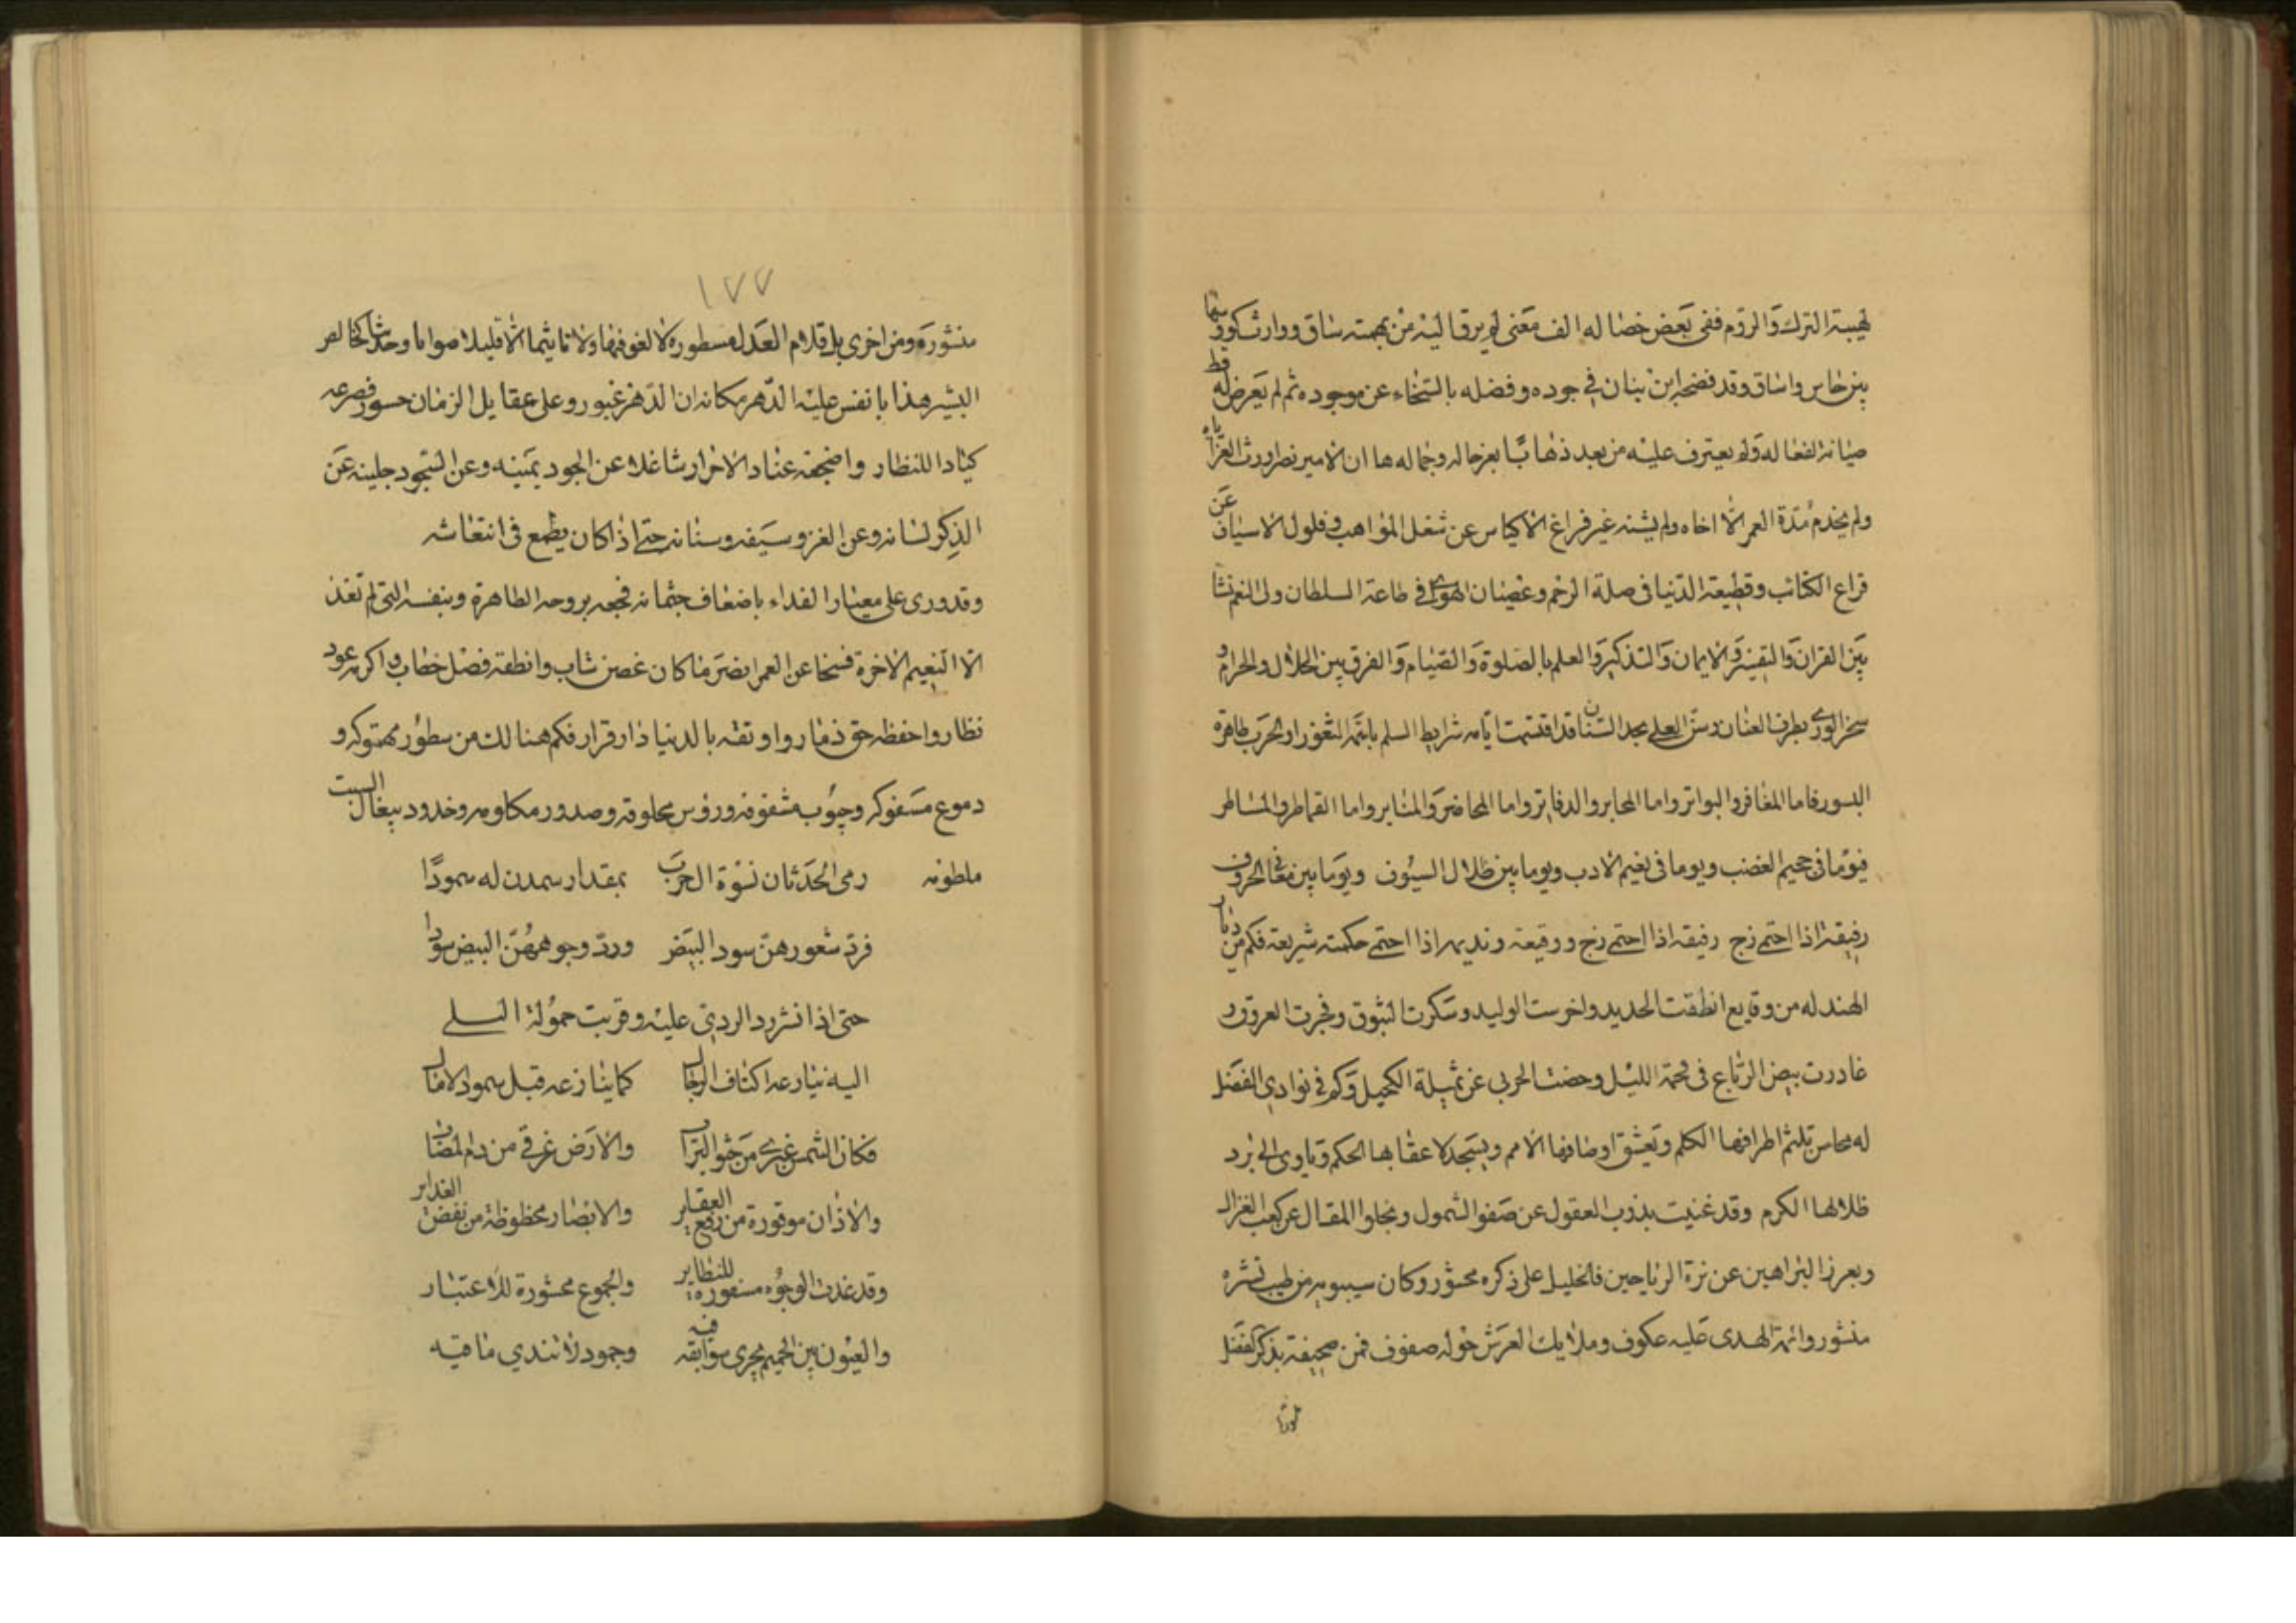 لهيبة الترك والروم ففى بعض خصاله الف معنى لم يرق اليه من بهمته ساق ووارث كوو سقا
بين خاس واساق وقد فضح ابن بنان فى جوده وفضله بالسخاء عن موجوده ثم لم يعرض له قط
صيانة لفعاله ولم يعترف عليه من بعد ذهابا بعز حاله وجماله ها ان الامير نصرا ورث العز اباه
ولم يخدم مدة العمر الا اخاه ولم يشنه غير فراغ الاكياس عن شغل المواهب وفلول الاسياف عن
قراع الكتائب وقطيعة الدنيا فى صلة الرحم وعصيان الهوى فى طاعة السلطان ولى النعم نشا
بين القران والتفسير والايمان والتذكير والعلم بالصلوة والصيام والفرق بين الحلال والحرام و
سخر الورى بطرف العنان وسن العلى بحد السنان قد اقتسمت ايامه شرايط السلم باثمة الثغور او الحرب ظاهرة
البسور فاما المغافر والبواتر واما المحابر والدفاتر واما المحاضر والمنابر واما القماطر والمساطر
فيوما فى جحيم الغضب ويوما فى نعيم الادب ويوما بين ظلال السيوف ويوما بين معانى الحروف
رفيقه اذا احتمى زج رفيقه اذا احتمى زج ووقيعة ونديمه اذا احتمى حكمته شريعة فكم من ديار
الهند له من وقايع انطقت الحديد واخرست الوليد وسكرت البثوق وفجرت العروق و
غادرت بيض الرباع فى فحمة الليل وحضت الحربى عن ثميلة الكحيل وكم فى نوادى الفضل
له محاسن تلثم اطرافها الكلم وتعشق اوصافها الامم ويسجد لاعقابها الحكم وتاوى الى برد
ظلالها الكرم وقد غنيت بذوب العقول عن صفو الشمول وبحلو المقال عن كعب الغزال
وبعرز البراهين عن نزة الرياحين فالخليل على ذكره محشور وكان سيبويه من طيب نشره
منشور وائمة الهدى عليه عكوف وملايك العرش حوله صفوف فمن صحيفة بذكر الفضل
منشورة
١٧٧
منشورة ومن اخرى باقلام العدل مسطورة لا لغو فيها ولا تاثيما الا قليلا صوابا وحديثا كخالص
البشير هذا بانفس عليه الدهر مكانه ان الدهر غيور وعلى عقايل الزمان جسور فصرعه
كيادا للنظار واضجعه عنادا لاحرار شاغلا عن الجود يمينه وعن السجود جبينه عن
الذكر لسانه وعن الغزو سيفه وسنانه حتى اذا كان يطمع فى انتعاشه
وقد ورى على معيار الفداء باضعاف جثمانه فجعه بروحه الطاهرة وبنفسه التى لم تغذ
الا النعيم الاخرة فسخا عن العمر انضر ما كان غصن شاب وانطقه فصل خطاب واكرمه عود
نظار واحفظه حق ذمار واوثقه بالدنيا دار قرار فكم هنالك من سطور مهتوكة و
دموع مسفوكة وجيوب مشقوقة ورؤس محلوقة وصدور مكلومة وخدود ببغال السبت
ملطومة رمى الحدثان نسوة ال حرب بمقدار سمدن له سمودا
فرد شعورهن سود البيض ورد وجوههن البيض سودا
حتى اذا نشر رد الردى عليه وقربت حمولة السلى
اليه ينازعه اكتاف الرجال كما ينازعه قبل سمود الامال
فكان الشمس غبرى من حثو التراب والارض غرقى من دم المصاب
والاذان موقورة من رفع العقاير والابصار محظوظة من نفض الغداير
وقد غدت الوجوه مسفورة للنظاير والجموع محشورة للاعتبار
والعيون بين الحميم يجرى سوابقه فيه وجمود لا تندى ماقيه